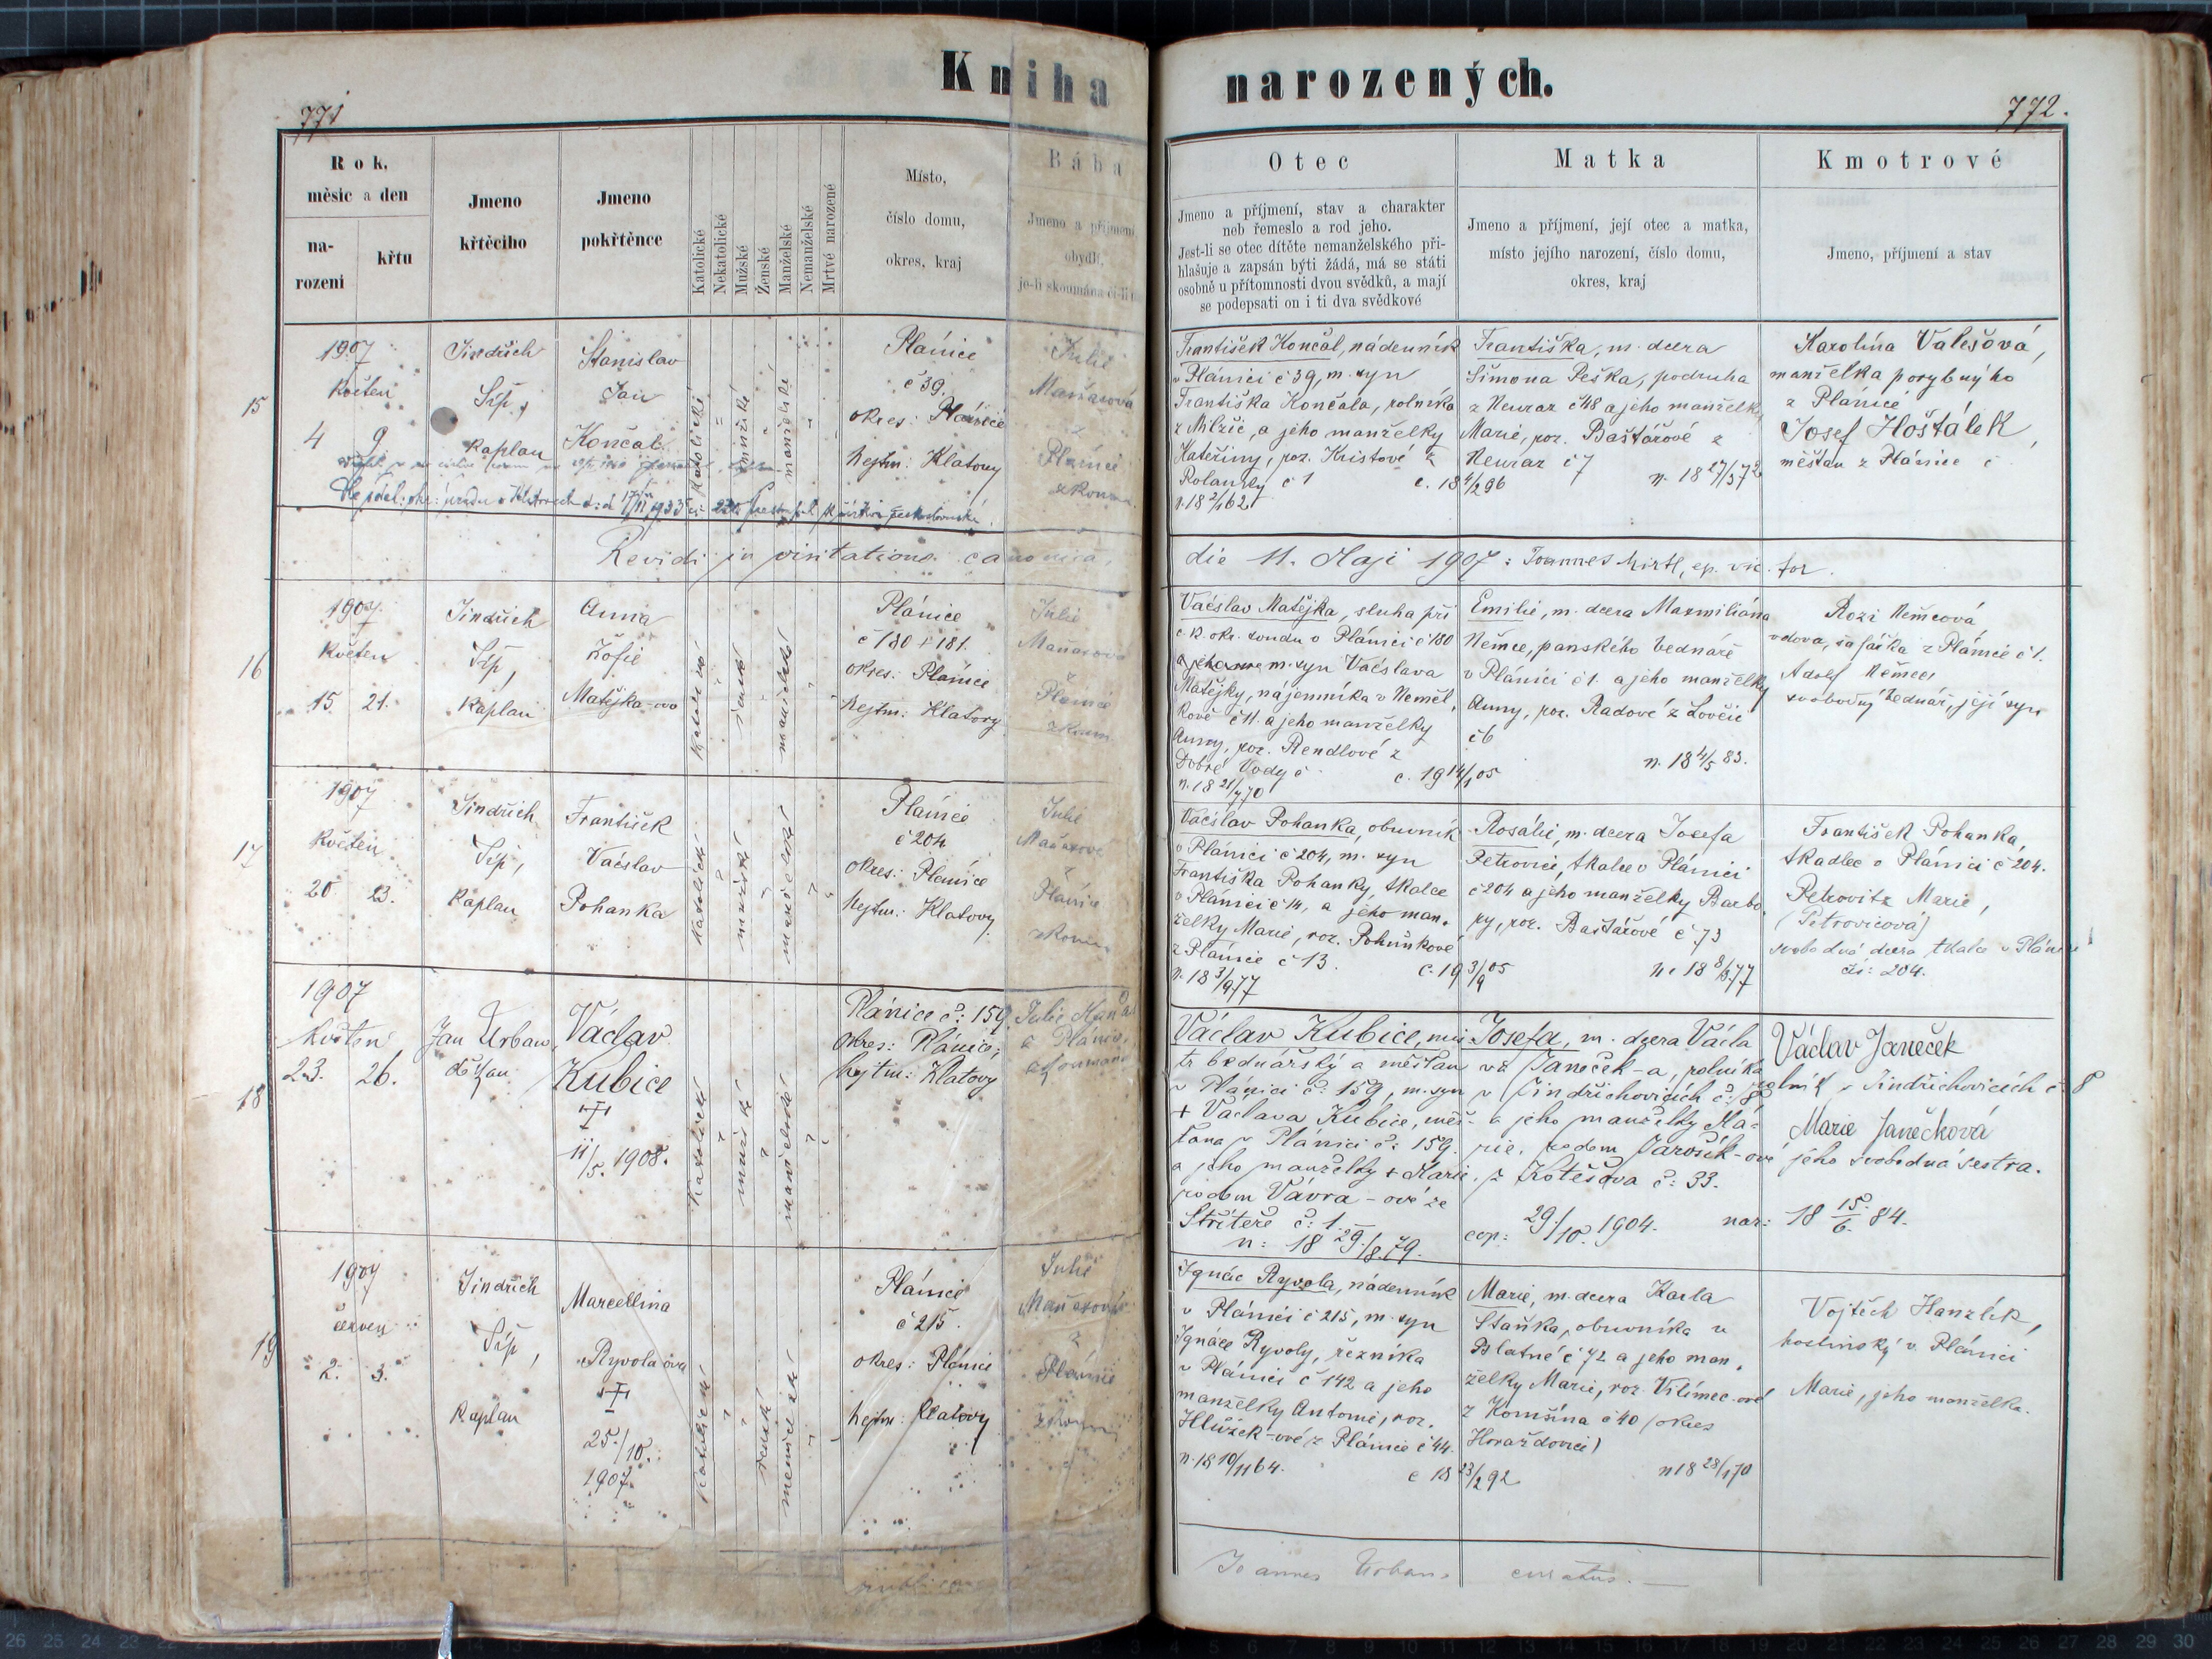 Kniha narozených.
771
772.
Rok,
měsíc a den
na-
rozeni
křtu
Jmeno
křtěcího
Jmeno
pokřtěnce
Katolické
Nekatolické
Mužské
Ženské
Manželské
Nemanželské
Mrtvé narozené
Místo,
číslo domu,
okres, kraj
Bába
Jmeno a příjmení,
obydlí,
je-li skoumána či-li
Otec
Jmeno a příjmení, stav a charakter
neb řemeslo a rod jeho.
Jest-li se otec dítěte nemanželského při-
hlašuje a zapsán býti žádá, má se státi
osobně u přítomnosti dvou svědků, a mají
se podepsati on i ti dva svědkové
Matka
Jmeno a příjmení, její otec a matka,
místo jejího narození, číslo domu,
okres, kraj
Kmotrové
Jmeno, příjmení a stav
15
1907
Květen
4 9
Jindřich
Síp,
Kaplan
Stanislav
Jan
Končal
katolické
mužské
manželské
Plánice
č 39
okres: Plánice
hejtm: Klatovy
Julie
Maňasová
z
Plánice
František Končal, nádenník
v Plánici č 39, m. syn
Františka Končala, rolníka
z Milčic, a jeho manželky
Kateřiny, roz. Kristové z
č 1
n. 18 2/1 62
c. 18 4/2 96
Františka, m. dcera
Šimona Peška, podruha
z Neuraz č 48 a jeho manželky
Marie, roz. Baštářové z
Neuraz č 7
n. 18 27/3 72
Karolína Valešová,
manželka porybného
z Plánice
Josef Hoštálek,
měšťan z Plánice č
Revidi in visitatione canonica,
die 11. Maji 1907: Joannes Hirtl, ep. vic. for.
16
1907
Květen
15 21.
Jindřich
Síp,
Kaplan
Anna
Žofie
Matějka-ova
katolické
ženské
manželské
Plánice
č 180 + 181.
okres: Plánice
hejtm: Klatovy
Julie
Maňasova
z
Plánice
zkoum.
Václav Matějka, sluha při
c. k. okr. soudu v Plánici č 180
m. syn Václava
Matějky, nájemníka v Neměl,
kově č 11. a jeho manželky
Anny, roz. Rendlové z
Dobré Vody č
n. 18 21/7 70
c. 19 14/1 05
Emilie, m. dcera Maxmiliána
Němce, panského bednáře
v Plánici č 1. a jeho manželky
Anny, roz. Radové z Lovčic
č 6
n. 18 4/5 83.
Rozi Němcová
vdova, šafářka z Plánice č 1.
Adolf Němec,
svobodný bednář, její syn
17
1907
Květen
20 23.
Jindřich
Síp,
Kaplan
František
Václav
Pohanka
katolické
mužské
manželské
Plánice
č 204
okres: Plánice
hejtm.: Klatovy
Julie
Maňasové
z
Plánice
zkoum.
Václav Pohanka, obuvník
v Plánici č 204, m. syn
Františka Pohanky, tkalce
v Plánici č 14, a jeho man.
želky Marie, roz. Pohůnkové
z Plánice č 13.
n. 18 3/9 77
c. 19 3/9 05
Rosálie, m. dcera Josefa
Petrovice, tkalce v Plánici
č 204 a jeho manželky Barbo.
ry, roz. Baštářové č 73
n. 18 8/9 77
František Pohanka,
tkadlec v Plánici č 204.
Petrovitz Marie,
(Petrovicová)
svobodná dcera tkalce v Plánici
čís: 204.
18
1907
květen
23. 26.
Jan Urban,
děkan
Václav
Kubice
†
11/5. 1908.
katolické
mužské
manželské
Plánice č: 159,
okres: Plánice;
hejtm: Klatovy
Julie Maňas.
z Plánice,
zkoumaná
Václav Kubice, mis-
tr bednářský a měšťan
v Plánici č: 159, m. syn
+ Václava Kubice, měš-
ťana v Plánici č: 159.
a jeho manželky + Marie,
rodem Vávra-ové ze
Stříteře č: 1.
n: 18 29./8. 79.
cop: 29./10. 1904.
Josefa, m. dcera Václa
va Janeček-a, rolníka
v Jindřichovicích č: 8
a jeho manželky Ma-
rie, rodem Jarošík-ové
z Kotěšova č: 33.
nar: 18 15./6. 84.
Václav Janeček
rolník v Jindřichovicích č. 8
Marie Janečková
jeho svobodná sestra.
19
1907
červen
2. 3.
Jindřich
Síp,
Kaplan
Marcellina
Ryvola ova
†
25./10.
1907.
katolické
ženské
manželské
Plánice
č 215.
okres: Plánice
hejtm: Klatovy
Julie
Maňasová
z
Plánice
Ignác Ryvola, nádenník
v Plánici č 215, m. syn
Ignáce Ryvoly, řezníka
v Plánici č 142 a jeho
manželky Antonie, roz.
Hlůžek-ové z Plánice č 44.
n. 18 10/11 64.
c 18 23/2 92
Marie, m. dcera Karla
Staňka, obuvníka v
Blatné č 72 a jeho man.
želky Marie, roz. Vilímec-ové
z Komšína č 40 (okres
Horažďovice)
n 18 28/1 70
Vojtěch Hanzlík,
hostinský v Plánici
Marie, jeho manželka.
Joannes Urban, curatus.